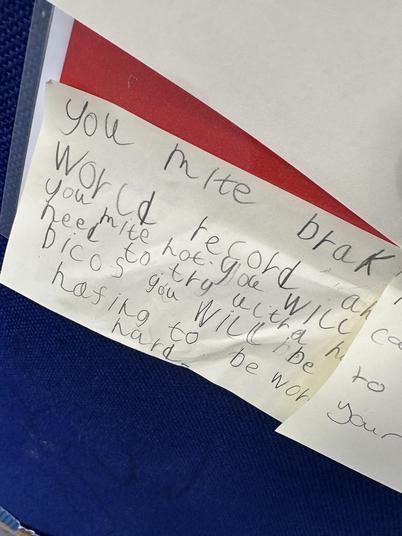 you mite brak
world record an
you mite not. you will
need to try witha
bicos you will be
hafing to be wor
hard.
to
your